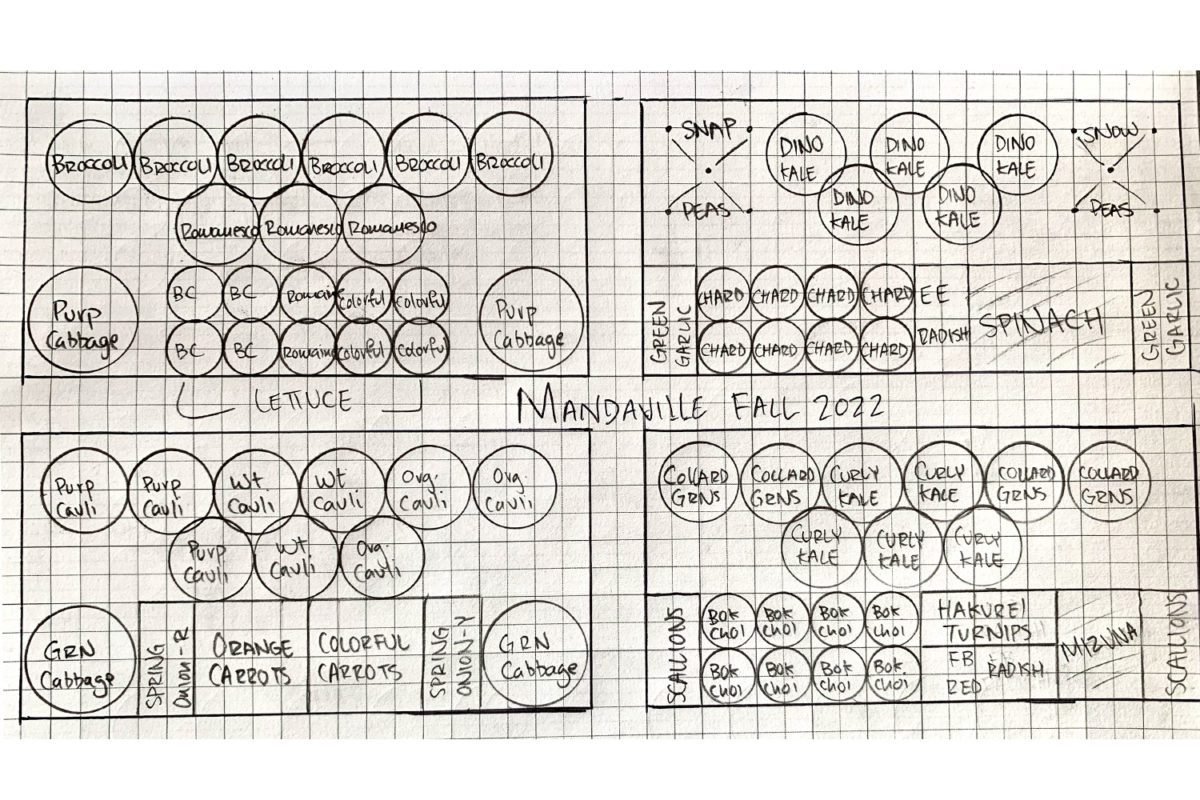 BROCCOLI BROCCOLI BROCCOLI BROCCOLI BROCCOLI BROCCOLI
Romanesco Romanesco Romanesco
Purp
Cabbage
BC BC Romaine Colorful Colorful
BC BC Romaine Colorful Colorful
Purp
Cabbage
LETTUCE
SNAP
PEAS
DINO
KALE
DINO
KALE
DINO
KALE
DINO
KALE
DINO
KALE
SNOW
PEAS
GREEN
GARLIC
CHARD CHARD CHARD CHARD
CHARD CHARD CHARD CHARD
EE
RADISH
SPINACH
GREEN
GARLIC
MANDAVILLE FALL 2022
Purp
Cauli
Purp
Cauli
Wt.
Cauli
Wt
Cauli
Org.
Cauli
Org.
Cauli
Purp
Cauli
Wt.
Cauli
Org.
Cauli
GRN
Cabbage
SPRING
Onion-R
ORANGE
CARROTS
COLORFUL
CARROTS
SPRING
ONION-Y
GRN
Cabbage
COLLARD
GRNS
COLLARD
GRNS
CURLY
KALE
CURLY
KALE
COLLARD
GRNS
COLLARD
GRNS
CURLY
KALE
CURLY
KALE
CURLY
KALE
SCALLIONS
BOK
CHOI
BOK
CHOI
BOK
CHOI
BOK
CHOI
BOK
CHOI
BOK
CHOI
BOK
CHOI
BOK
CHOI
HAKUREI
TURNIPS
FB RADISH
RED
MIZUNA
SCALLIONS